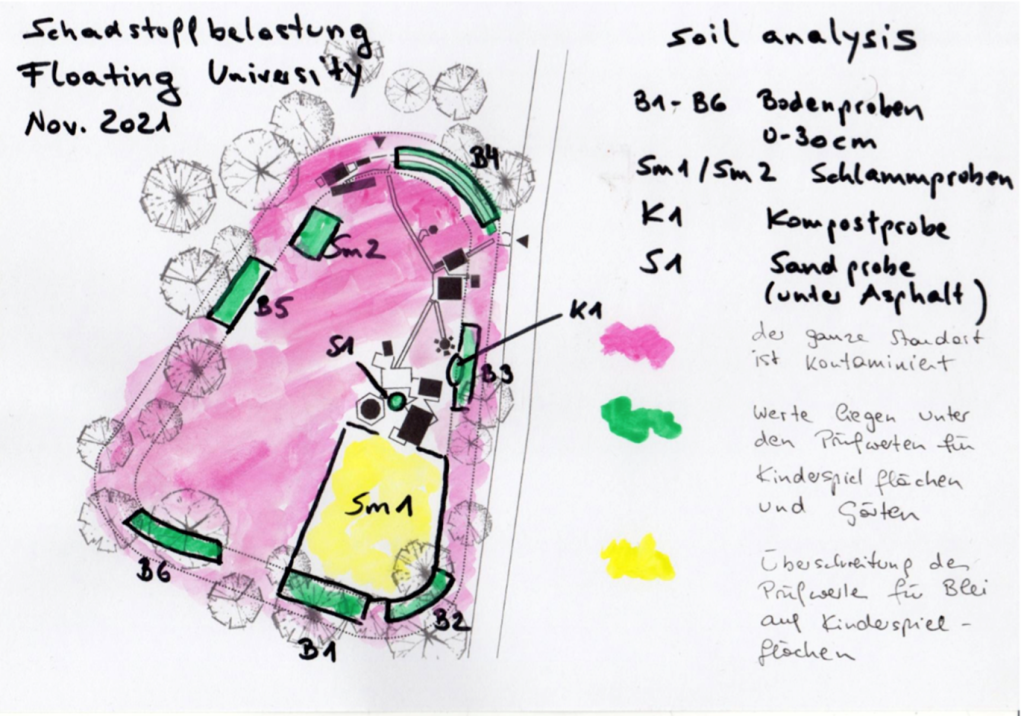 Schadstoffbelastung
Floating University
Nov. 2021
soil analysis
B1-B6 Bodenproben
0-30cm
Sm1/Sm2 Schlammproben
K1 Kompostprobe
S1 Sandprobe
(unter Asphalt)
der ganze Standort
ist kontaminiert
Werte liegen unter
den Prüfwerten für
Kinderspielflächen
und Gärten
Überschreitung der
Prüfwerte für Blei
auf Kinderspiel-
flächen
B4
Sm2
B5
K1
S1
B3
Sm1
B6
B2
B1